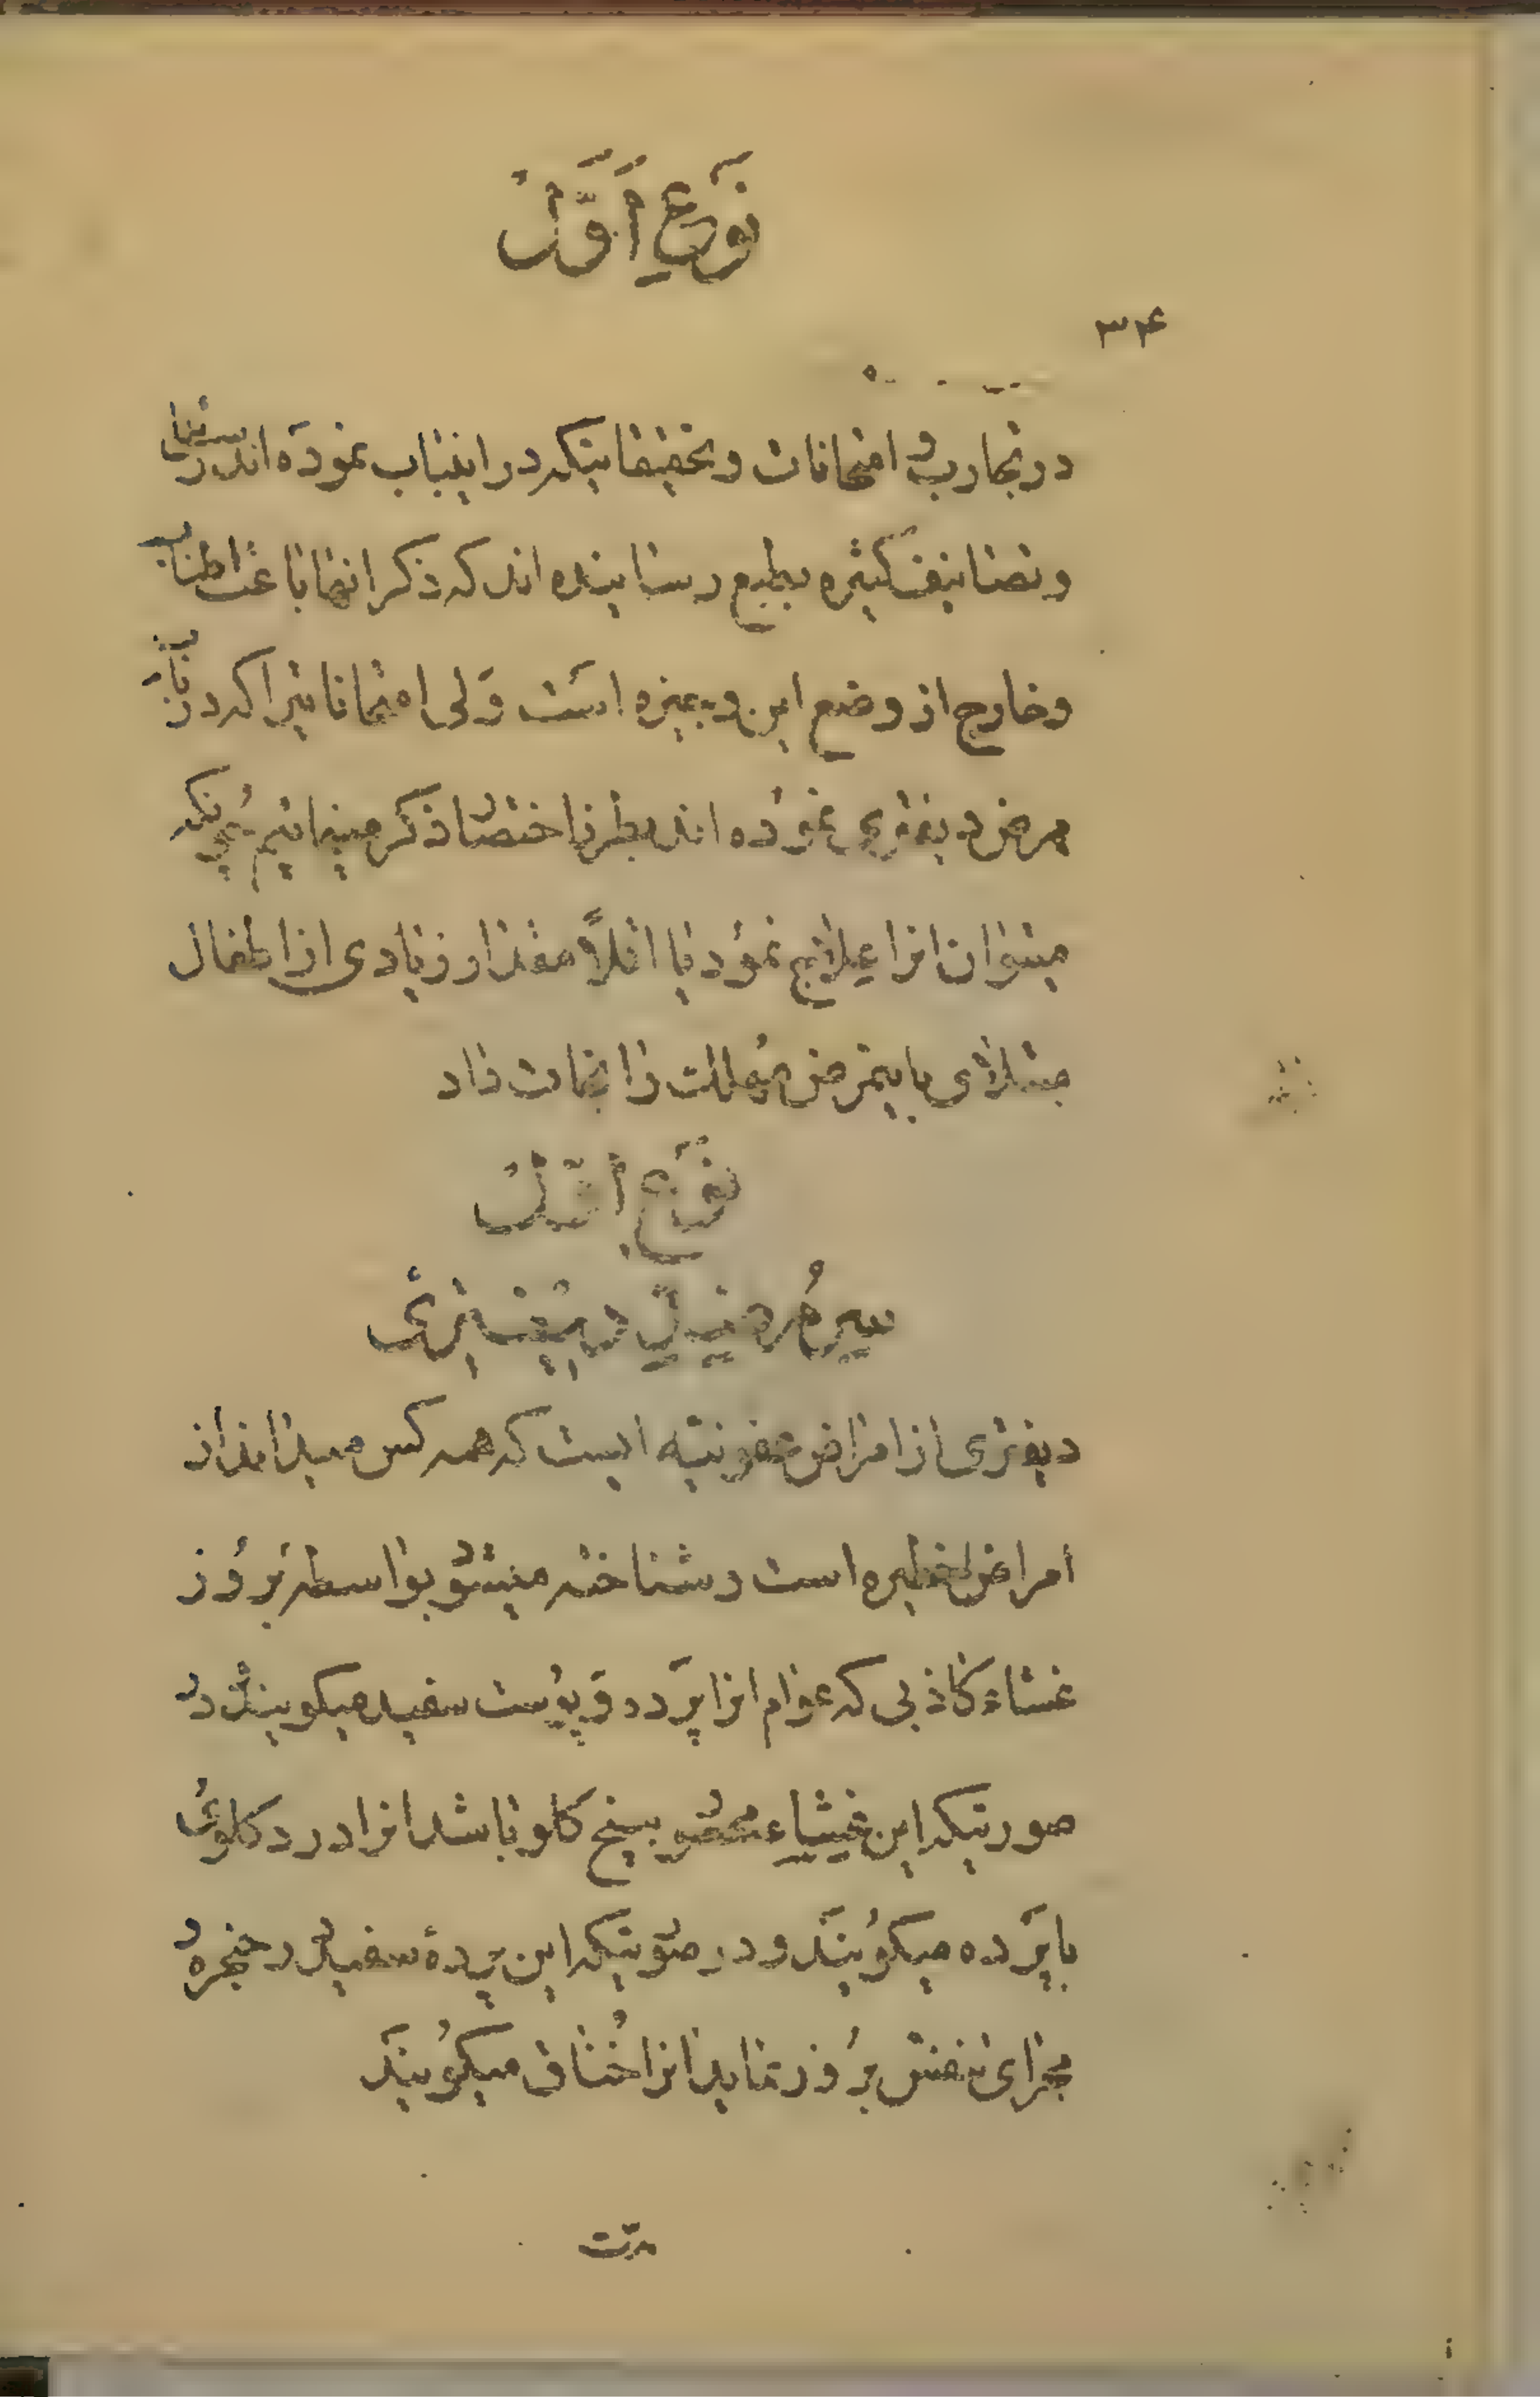 نَوعِ اَوَّلْ
۳۴
در تجارب و امتحانات و تحقیقاتیکه در اینباب نموده اند
و تصانیف کثیره بطبع رسانیده اند که ذکر انها باعث اطناب
و خارج از وضع این وجیزه است وَلی امتحاناتیرا که در باب
مرض دیفتری نموده اند بطرز اختصار ذکر مینمائیم
میتوان انرا علاج نمود یا اقلاً مقدار زیادی از اطفال
مبتلای باینمرض مهلک را نجات داد
نوع اوّل
سیرُم ضدّ دیفتری
دیفتری از امراض عفونتیه ایست که همه کس میداند از
امراض خطیره است و شناخته میشود بواسطه بروز
غشاء کاذبی که عوام انرا پرده و پوست سفید میگویند در
صورتیکه این غشاء بیخ گلو باشد انرا درد گلوی
با پرده میگویند و در صورتیکه این پردهٔ سفید در حنجره و
مجرای تنفس بروز نماید انرا خُناق میگویند
مدّت